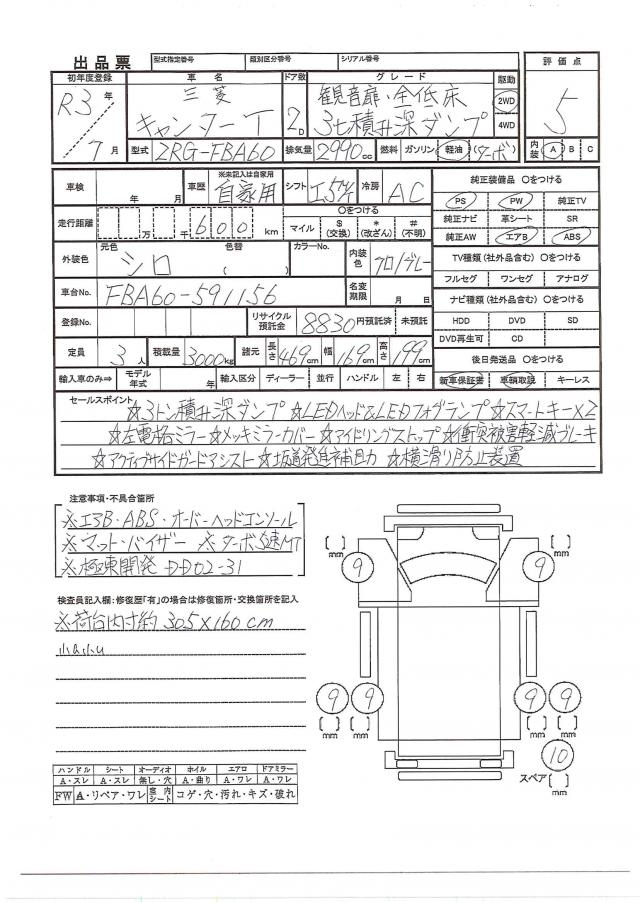 出品票 型式指定番号 類別区分番号 シリアル番号
初年度登録 車名 ドア数 グレード 駆動 評価点
R3年 三菱 観音扉・全低床 2WD 5
7月 キャンターT 2D 3t積升深ダンプ 4WD
型式 2RG-FBA60 排気量 2990cc 燃料 ガソリン 軽油 (ターボ) 内装 A B C
車検 年 月 車歴 ※未記入は自家用 自家用 シフト 冷房 AC 純正装備品 〇をつける
走行距離 万 千 600 km 〇をつける マイル $(交換) *(改ざん) #(不明)
PS PW 純正TV
純正ナビ 革シート SR
純正AW エアB ABS
外装色 元色 シロ 色替 ( ) カラーNo. 内装色 クロ/グレー
TV種類(社外品含む) 〇をつける
フルセグ ワンセグ アナログ
車台No. FBA60-591156 名変期限 月 日
ナビ種類(社外品含む) 〇をつける
登録No. リサイクル預託金 8830円預託済 未預託
HDD DVD SD
DVD再生可 CD
定員 3人 積載量 3000kg 諸元 長さ 469cm 幅 169cm 高さ 199cm
後日発送品 〇をつける
輸入車のみ⇒ モデル年式 年 輸入区分 ディーラー 並行 ハンドル 左 右 新車保証書 車輌取説 キーレス
セールスポイント
☆3トン積升深ダンプ ☆LEDヘッド&LEDフォグランプ ☆スマートキー×2
☆左電格ミラー ☆メッキミラーカバー ☆アイドリングストップ ☆衝突被害軽減ブレーキ
☆アクティブサイドガードアシスト ☆坂道発進補助 ☆横滑り防止装置
注意事項・不具合箇所
※エアB・ABS・オーバーヘッドコンソール
※マット・バイザー ※ターボ5速MT
※極東開発 DD02-31
検査員記入欄:修復歴「有」の場合は修復箇所・交換箇所を記入
※荷台内寸約 305×160cm
小A小U
[ ] mm 9 9 [ ] mm
9 9 9 9
[ ] [ ] [ ] [ ]
mm mm mm mm
10
スペア [ ] mm
ハンドル シート オーディオ ホイル エアロ ドアミラー
A・スレ A・スレ 無し・穴 A・曲り A・ワレ A・ワレ
FW A・リペア・ワレ 室内シート コゲ・穴・汚れ・キズ・破れ